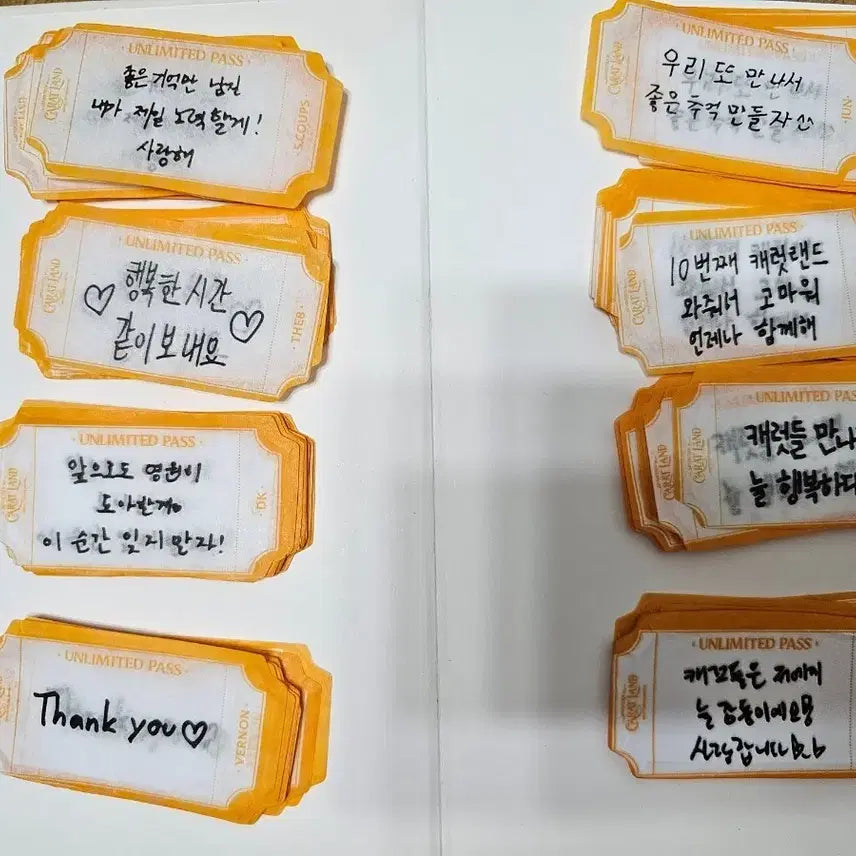 UNLIMITED PASS
CARAT LAND
좋은 기억만 남길
내가 제일 노력할게!
사랑해
S.COUPS
UNLIMITED PASS
CARAT LAND
행복한 시간
같이 보내요
THE8
UNLIMITED PASS
CARAT LAND
앞으로도 영원히
이 순간 잊지 말자!
DK
UNLIMITED PASS
Thank you
VERNON
UNLIMITED PASS
CARAT LAND
우리 또 만나서
좋은 추억 만들자
JUN
UNLIMITED PASS
CARAT LAND
10번째 캐럿랜드
와줘서 고마워
언제나 함께해
UNLIMITED PASS
CARAT LAND
캐럿들 만나
늘 행복하다
UNLIMITED PASS
CARAT LAND
저에게
늘 감동이에요
사랑합니다